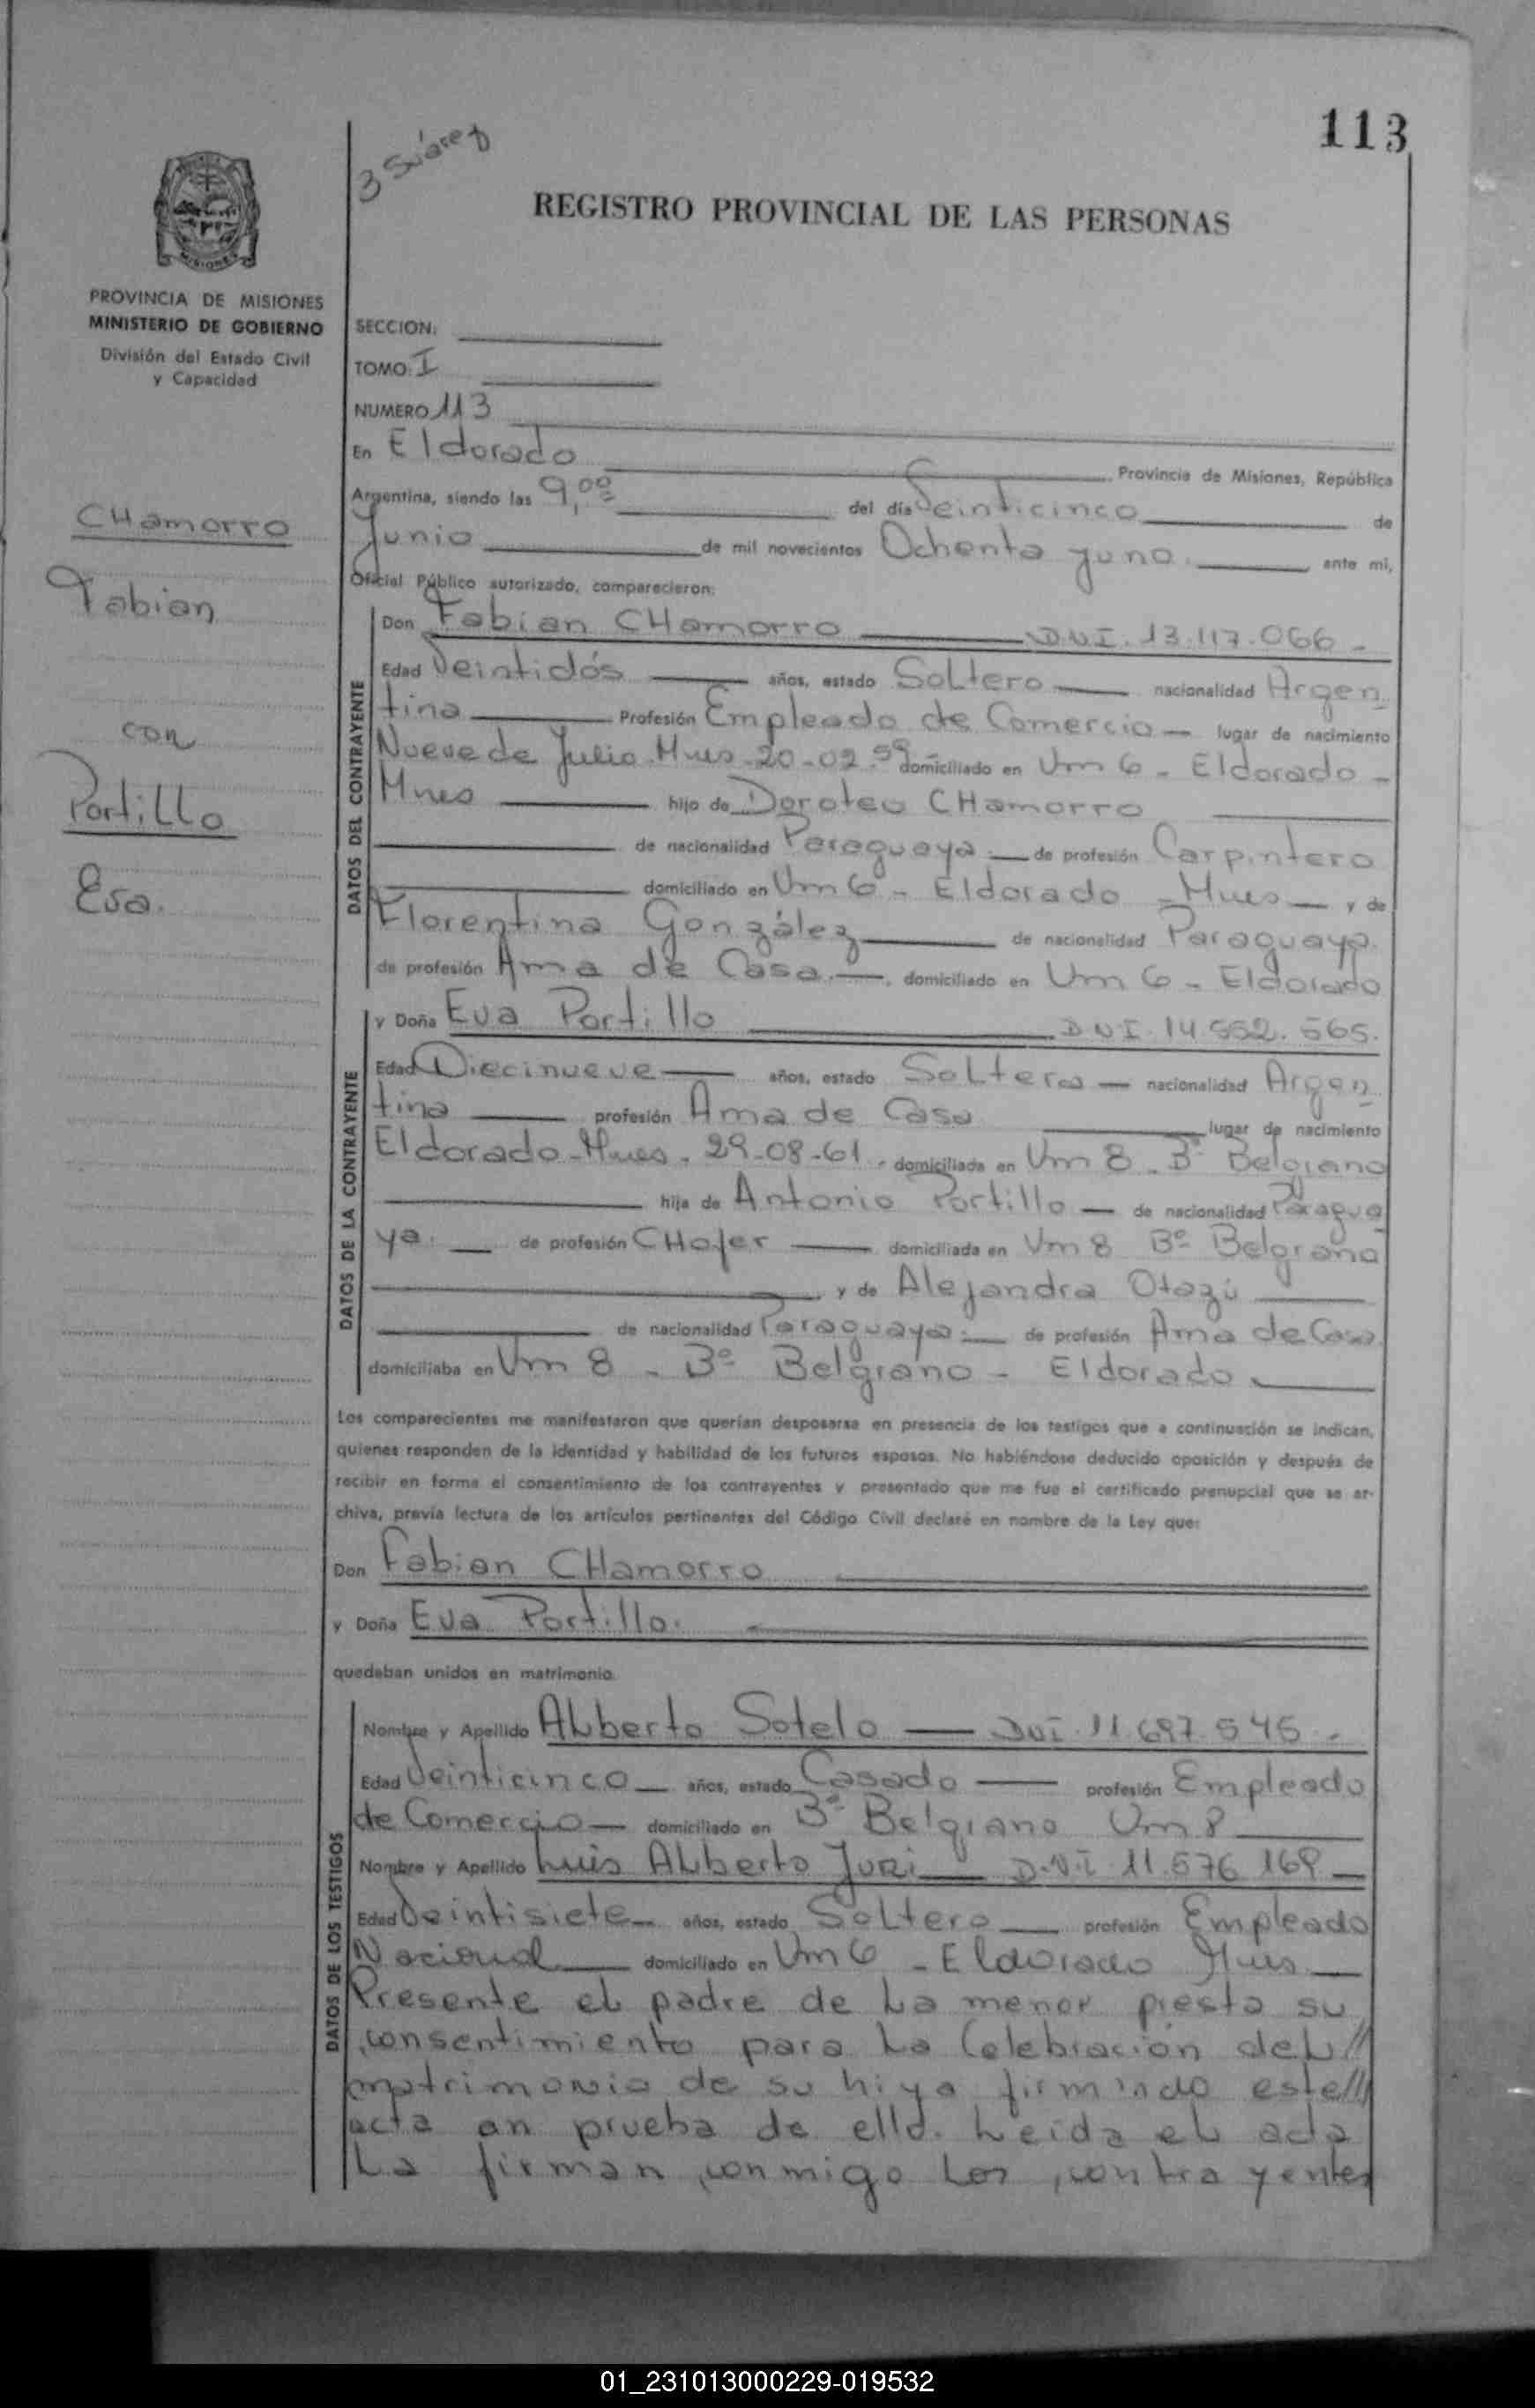 113
3 Suárez
REGISTRO PROVINCIAL DE LAS PERSONAS
MISIONES
PROVINCIA DE MISIONES
MINISTERIO DE GOBIERNO
División del Estado Civil
y Capacidad
CHamorro
Fabian
con
Portillo
Eva.
SECCION:
TOMO: I
NUMERO 113
En Eldorado Provincia de Misiones, República
Argentina, siendo las 9,00 del día Veinticinco de
Junio de mil novecientos Ochenta y uno. ante mi,
Oficial Público autorizado, comparecieron:
DATOS DEL CONTRAYENTE
Don Fabian CHamorro D.N.I. 13.117.066 -
Edad Veintidós años, estado Soltero nacionalidad Argen
tina Profesión Empleado de Comercio lugar de nacimiento
Nueve de Julio. Mnes. 20-02-59 domiciliado en Vm 6 - Eldorado -
Mnes hijo de Doroteo CHamorro
de nacionalidad Paraguaya de profesión Carpintero
domiciliado en Vm 6 - Eldorado - Mnes y de
Florentina González de nacionalidad Paraguaya.
de profesión Ama de Casa. domiciliado en Vm 6 - Eldorado
DATOS DE LA CONTRAYENTE
y Doña Eva Portillo D N I. 14.552.565.
Edad Diecinueve años, estado Soltera nacionalidad Argen
tina profesión Ama de Casa lugar de nacimiento
Eldorado-Mnes. 29-08-61. domiciliada en Vm 8. Bº Belgrano
hija de Antonio Portillo de nacionalidad Paragua
ya. de profesión CHofer domiciliada en Vm 8 Bº Belgrano
y de Alejandra Otazú
de nacionalidad Paraguaya. de profesión Ama de Casa.
domiciliaba en Vm 8 - Bº Belgrano - Eldorado.
Los comparecientes me manifestaron que querían desposarse en presencia de los testigos que a continuación se indican,
quienes responden de la identidad y habilidad de los futuros esposos. No habiéndose deducido oposición y después de
recibir en forma el consentimiento de los contrayentes y presentado que me fue el certificado prenupcial que se ar-
chiva, previa lectura de los artículos pertinentes del Código Civil declaré en nombre de la Ley que:
Don Fabian CHamorro
y Doña Eva Portillo.
quedaban unidos en matrimonio
DATOS DE LOS TESTIGOS
Nombre y Apellido ALberto Sotelo DNI. 11.697.545 -
Edad Veinticinco años, estado Casado profesión Empleado
de Comercio domiciliado en Bº Belgrano Vm 8
Nombre y Apellido Luis ALberto Juri D.N.I 11.576 169
Edad Veintisiete años, estado Soltero profesión Empleado
Nacional domiciliado en Vm 6 - Eldorado Mnes
Presente el padre de La menor presta su
consentimiento para La Celebracion deL//
matrimonio de su hiya firmndo este///
acta an prueba de ello. Leida eL acta
La firman conmigo Los contrayentes
01_231013000229-019532